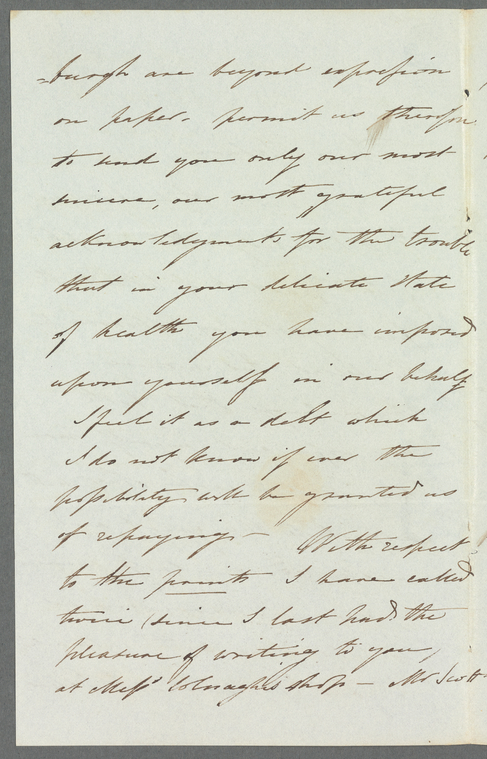 =burgh are beyond expression
on paper - permit us therefore
to send you only our most
sincere, our most grateful
acknowledgments for the trouble
that in your delicate state
of health you have imposed
upon yourself in our behalf
I feel it as a debt which
I do not know if ever the
possibility will be granted us
of repaying - With respect
to the prints I have called
twice (since I last had the
pleasure of writing to you)
at Messrs Colnaghi's shop - Mr Scott